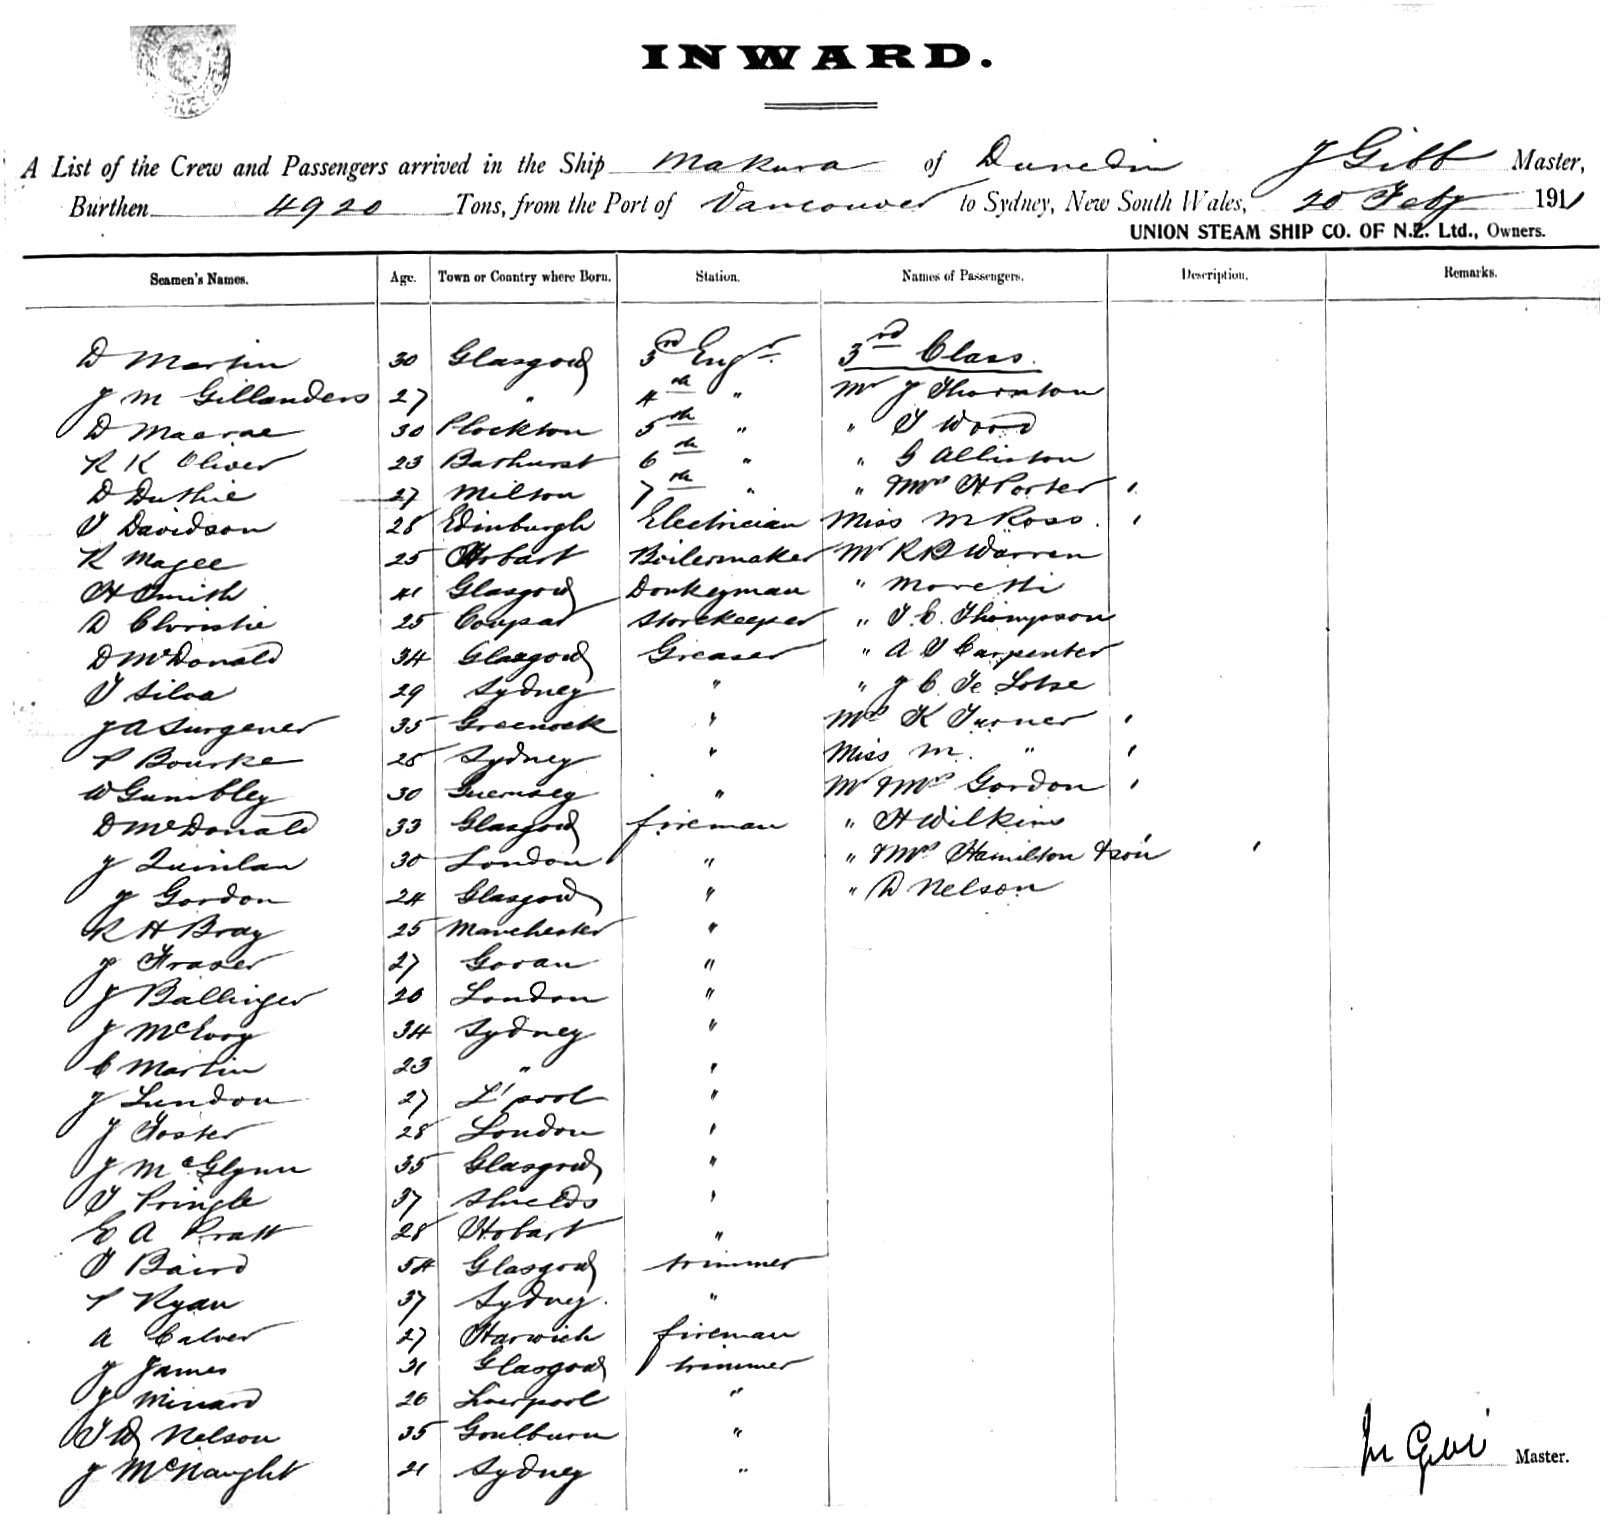 INWARD.
A List of the Crew and Passengers arrived in the Ship Makura of Dunedin J Gibb Master,
Burthen 4920 Tons, from the Port of Vancouver to Sydney, New South Wales, 20 Feby 1911
UNION STEAM SHIP CO. OF N.Z. Ltd., Owners.
Seamen's Names. Age. Town or Country where Born. Station. Names of Passengers. Description. Remarks.
D Martin 30 Glasgow 3rd Engr. 3rd Class.
J M Gillanders 27 " 4th " Mr J Thornton
D Macrae 30 Plockton 5th " " T Wood
R K Oliver 23 Bathurst 6th " " G Allison
D Duthie 27 Milton 7th " " Mrs H Porter '
T Davidson 28 Edinburgh Electrician Miss M Ross. '
R Magee 25 Hobart Boilermaker Mr R B Warren
H Smith 41 Glasgow Donkeyman " Moretti
D Christie 25 Coupar Storekeeper " T. C. Thompson
D McDonald 34 Glasgow Greaser " A T Carpenter
T Silva 29 Sydney " " J C
J A Surgener 35 Greenock " Mrs K Turner '
P Bourke 26 Sydney " Miss M. " '
W Gumbley 30 Guernsey " Mr & Mrs Gordon '
D McDonald 33 Glasgow fireman " H Wilkins
J Quinlan 30 London " " & Mrs Hamilton & son '
J Gordon 24 Glasgow " " D Nelson
R H Bray 25 Manchester "
J Fraser 27 Govan "
J Ballinger 20 London "
J McEvoy 34 Sydney "
C Martin 23 " "
J Lundon 27 L'pool "
J Foster 28 London "
J McGlynn 35 Glasgow "
T Pringle 37 Shields "
E A Pratt 28 Hobart "
T Baird 54 Glasgow trimmer
P Ryan 37 Sydney. "
A Calver 27 Harwich fireman
J James 31 Glasgow trimmer
J Minard 26 Liverpool "
T W Nelson 35 Goulburn "
J McNaught 21 Sydney "
J Gibb Master.